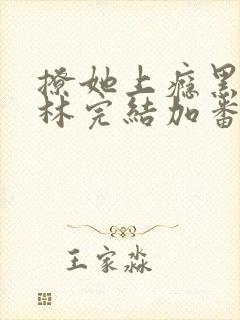 撩她上癮黑
林完結加番
王家淼